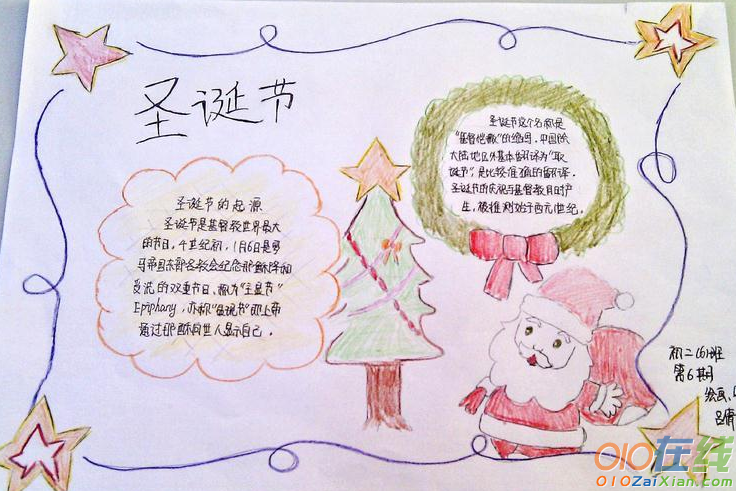 圣诞节
圣诞节的起源
圣诞节是基督教世界最大
的节日。4世纪初，1月6日是罗
马帝国东部各教会纪念耶稣降和
受洗的双重节日、称为“主显节”
Epiphany，亦称“显现节”即上帝
通过耶稣向世人显示自己。
圣诞节这个名称是
“基督弥撒”的缩写，中国除
大陆地区外基本翻译为“耶
诞节”，是比较准确的翻译。
圣诞节的庆祝与基督教同时产
生，被推测始于西元1世纪。
初二(6)班
第6期
绘画、
010在线
010ZaiXian.com